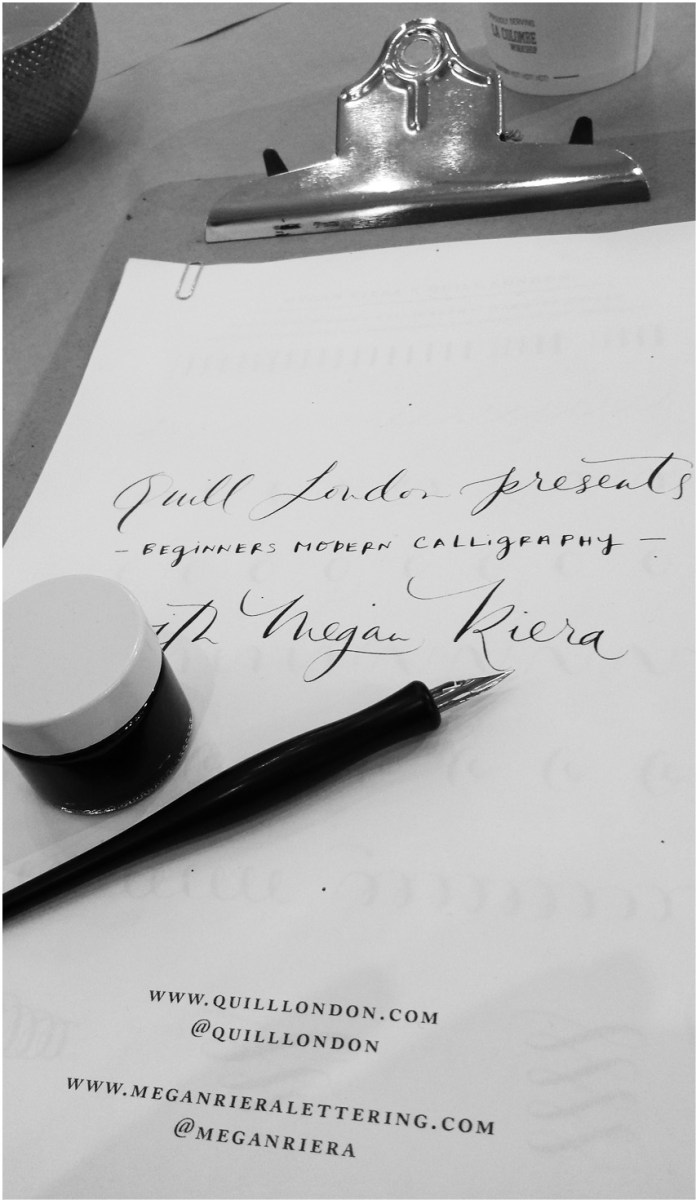 LA COLOMBE
WORKSHOP
Quill London presents
- BEGINNERS MODERN CALLIGRAPHY -
Megan Riera
WWW.QUILLLONDON.COM
@QUILLLONDON
WWW.MEGANRIERALETTERING.COM
@MEGANRIERA